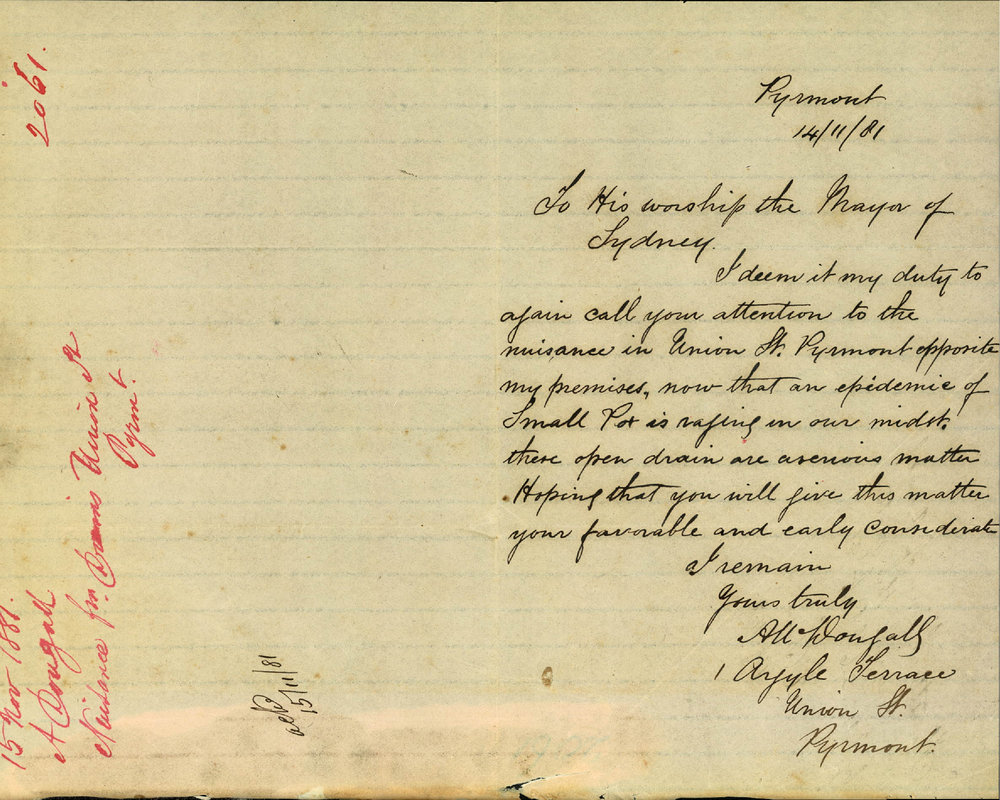 Pyrmont
14/11/81
To His worship the Mayor of
Sydney.
I deem it my duty to
again call your attention to the
nuisance in Union St. Pyrmont opposite
my premises, now that an epidemic of
Small Pox is raging in our midst,
these open drain are a serious matter
Hoping that you will give this matter
your favorable and early considerate
I remain
Yours truly
A McDougall
1 Argyle Terrace
Union St.
Pyrmont.
2061.
15 Nov 1881.
A Dougall
Nuisance frm. Drains Union St
Pyrmt.
15/11/81